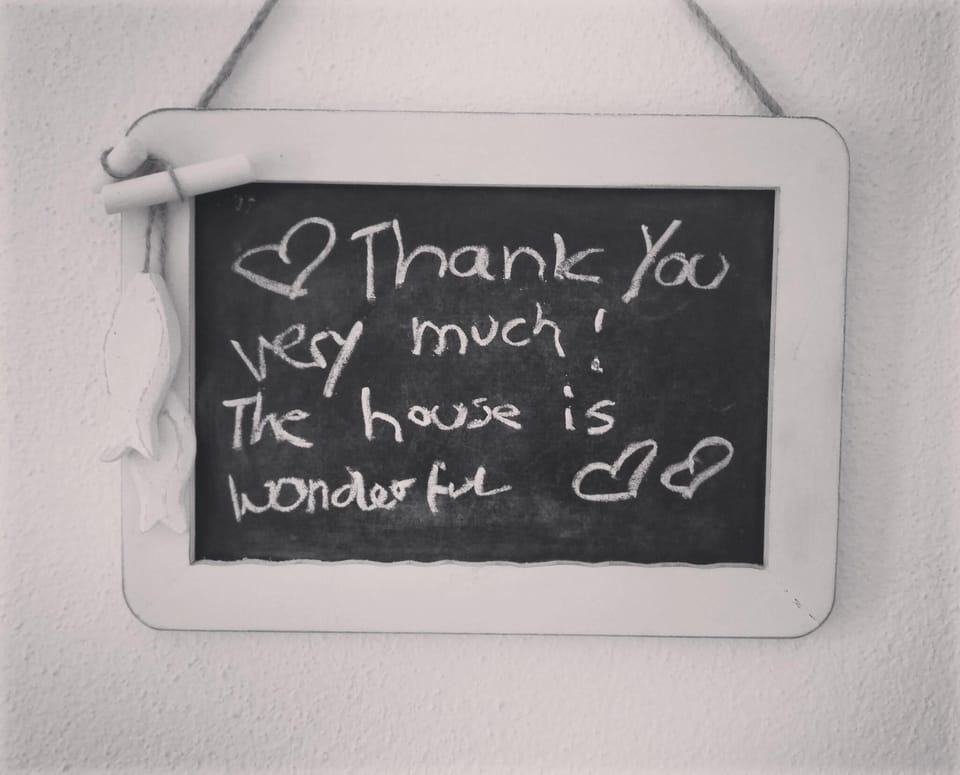 ♡ Thank You
very much!
The house is
wonderful ♡♡